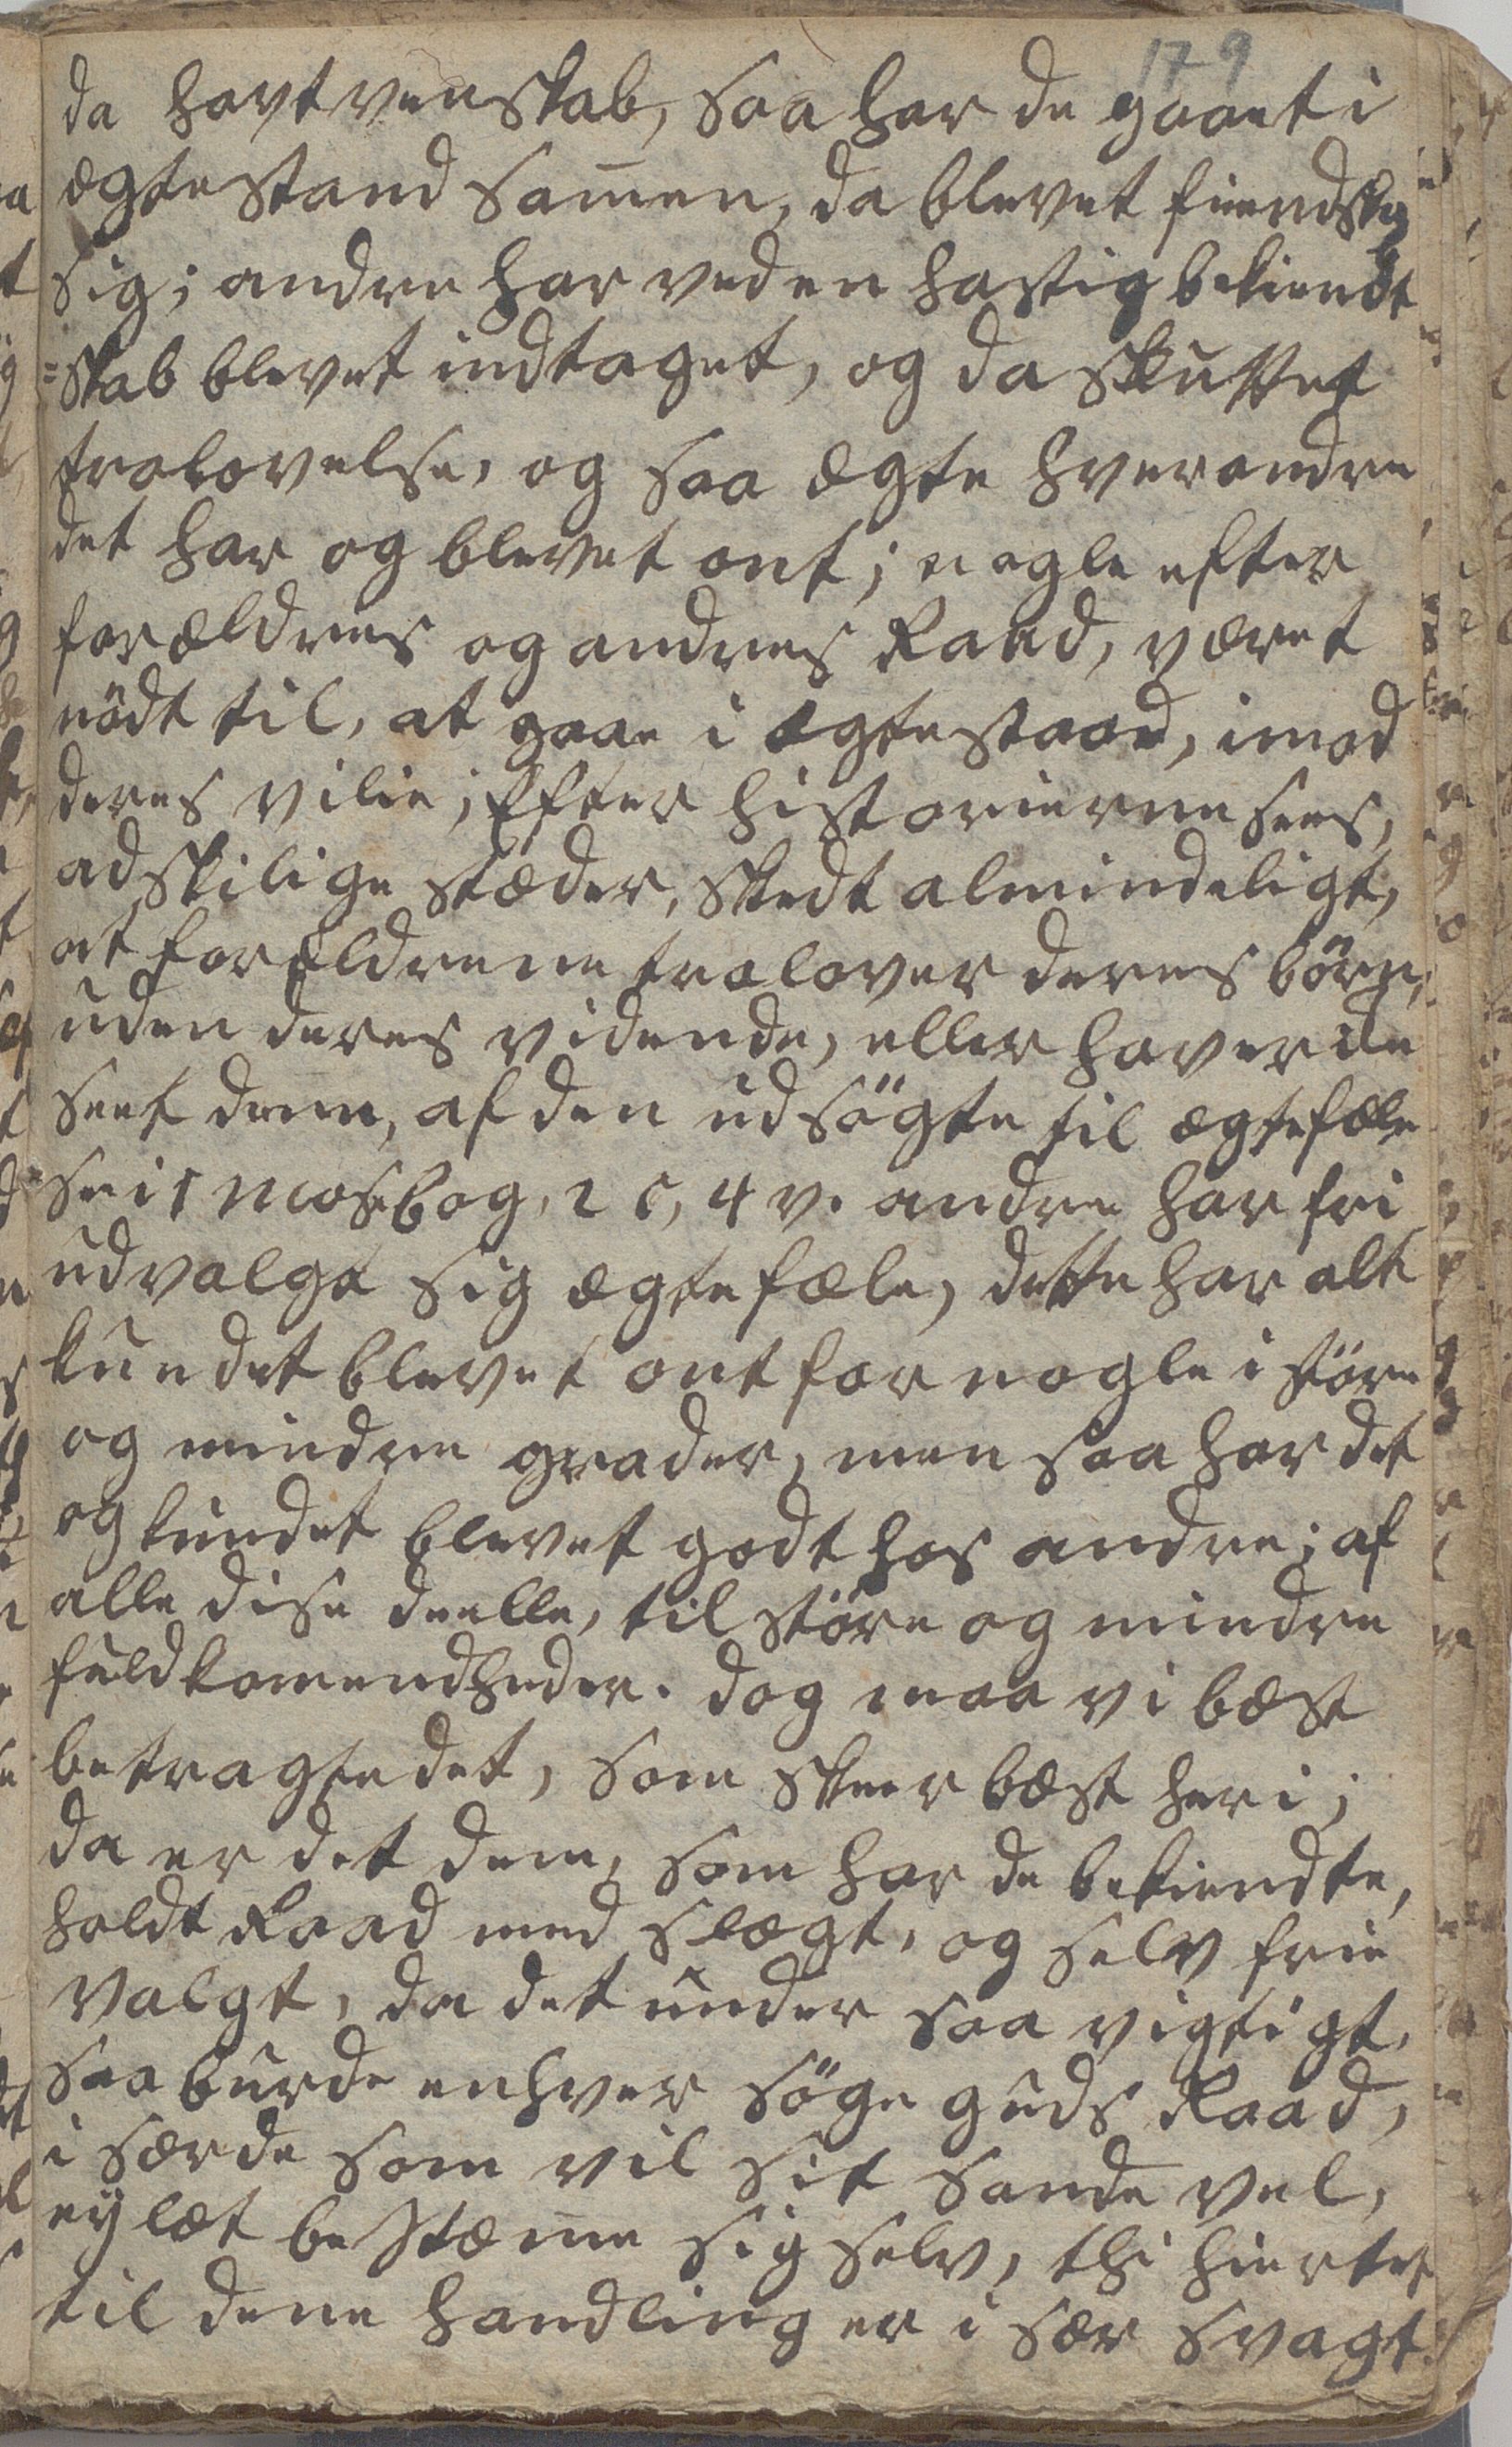 179
da havt venskab, saa har de gaaet i
ægtestand samen, da blevet fiendske
sig; andre har ved en hastig bekiendt
=skab blevet indtaget, og da sluttet
trolovelse, og saa ægte hverandre
det har og blevet ont; nogle efter
forældres og andres Raad, været
nödt til, at gaae i ægtestand, imod
deres vilie; Efter historierne sees,
adskilige stæder, skedt almindeligt,
at forældrene trolover deres börn,
uden deres vidende, eller haver de
seet dem, af den udsögte til ægtefæle
se i 1 Mosebog, 2 C, 4 v. andre har fri
udvalgt sig ægtefæle, dette har alt
kundet blevet ont for nogle i störe
og mindre grader, men saa har det
og kundet blevet godt hos andre; af
alle disse deelle, til störe og mindre
fuldkomendheder. dog maa vi bæst
betragte det, som skeer bæst heri;
da er det dem, som har de bekiendte,
holdt Raad med slægt, og selv frie
valgt, da det under saa vigtigt,
saa burde enhver söge guds Raad,
i særde som vil sit sande vel,
ey læt bestæme sig selv, thi hiertet
til dene handling er i sær svagt.